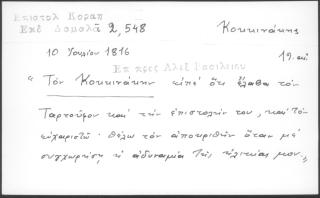 Επιστολ Κοραη
Εκδ Δαμαλᾶ 2,548
Κοκκινάκης
10 Ἰουλίου 1816
19. αἰ.
Επ πρὸς Αλεξ Βασιλείου
"Τὸν Κοκκινάκην εἰπὲ ὅτι ἔλαβα τὸν
Ταρτοῦφον καὶ τὴν ἐπιστολήν του, καὶ τὸν
εὐχαριστῶ· θέλω τὸν ἀποκριθῆν ὅταν μὲ
συγχωρήσῃ ἡ ἀδυναμία τῆς ἡλικίας μου."